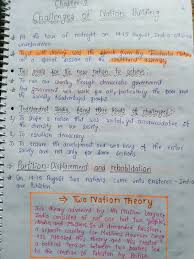 Chapter-1
Challenges of Nation Building
At the hour of midnight on 14-15 August India
independence
Tryst with destiny was the speech from
special session of the constituent assembly
Two goals for the new nation to achieve
To run our country through democratic government
government will work for all, particularly the poor and
the socially disadvantaged groups.
Independent India faced three kinds of challenges
To shape a nation that was
of our society.
To establish democracy
To ensure the development and well being of the entire
society and not only of some sections
Partition: Displacement and rehabilitation
On 14-15 August two nations came into existence - India
and Pakistan.
Two Nation Theory
This theory advanced by the Muslim League
India consisted of not one but two
Hindus and Muslims. It demanded Pakistan,
a separate country for the Muslims. Congress
opposed this theory and this
a political
the creation of Pakistan by British.